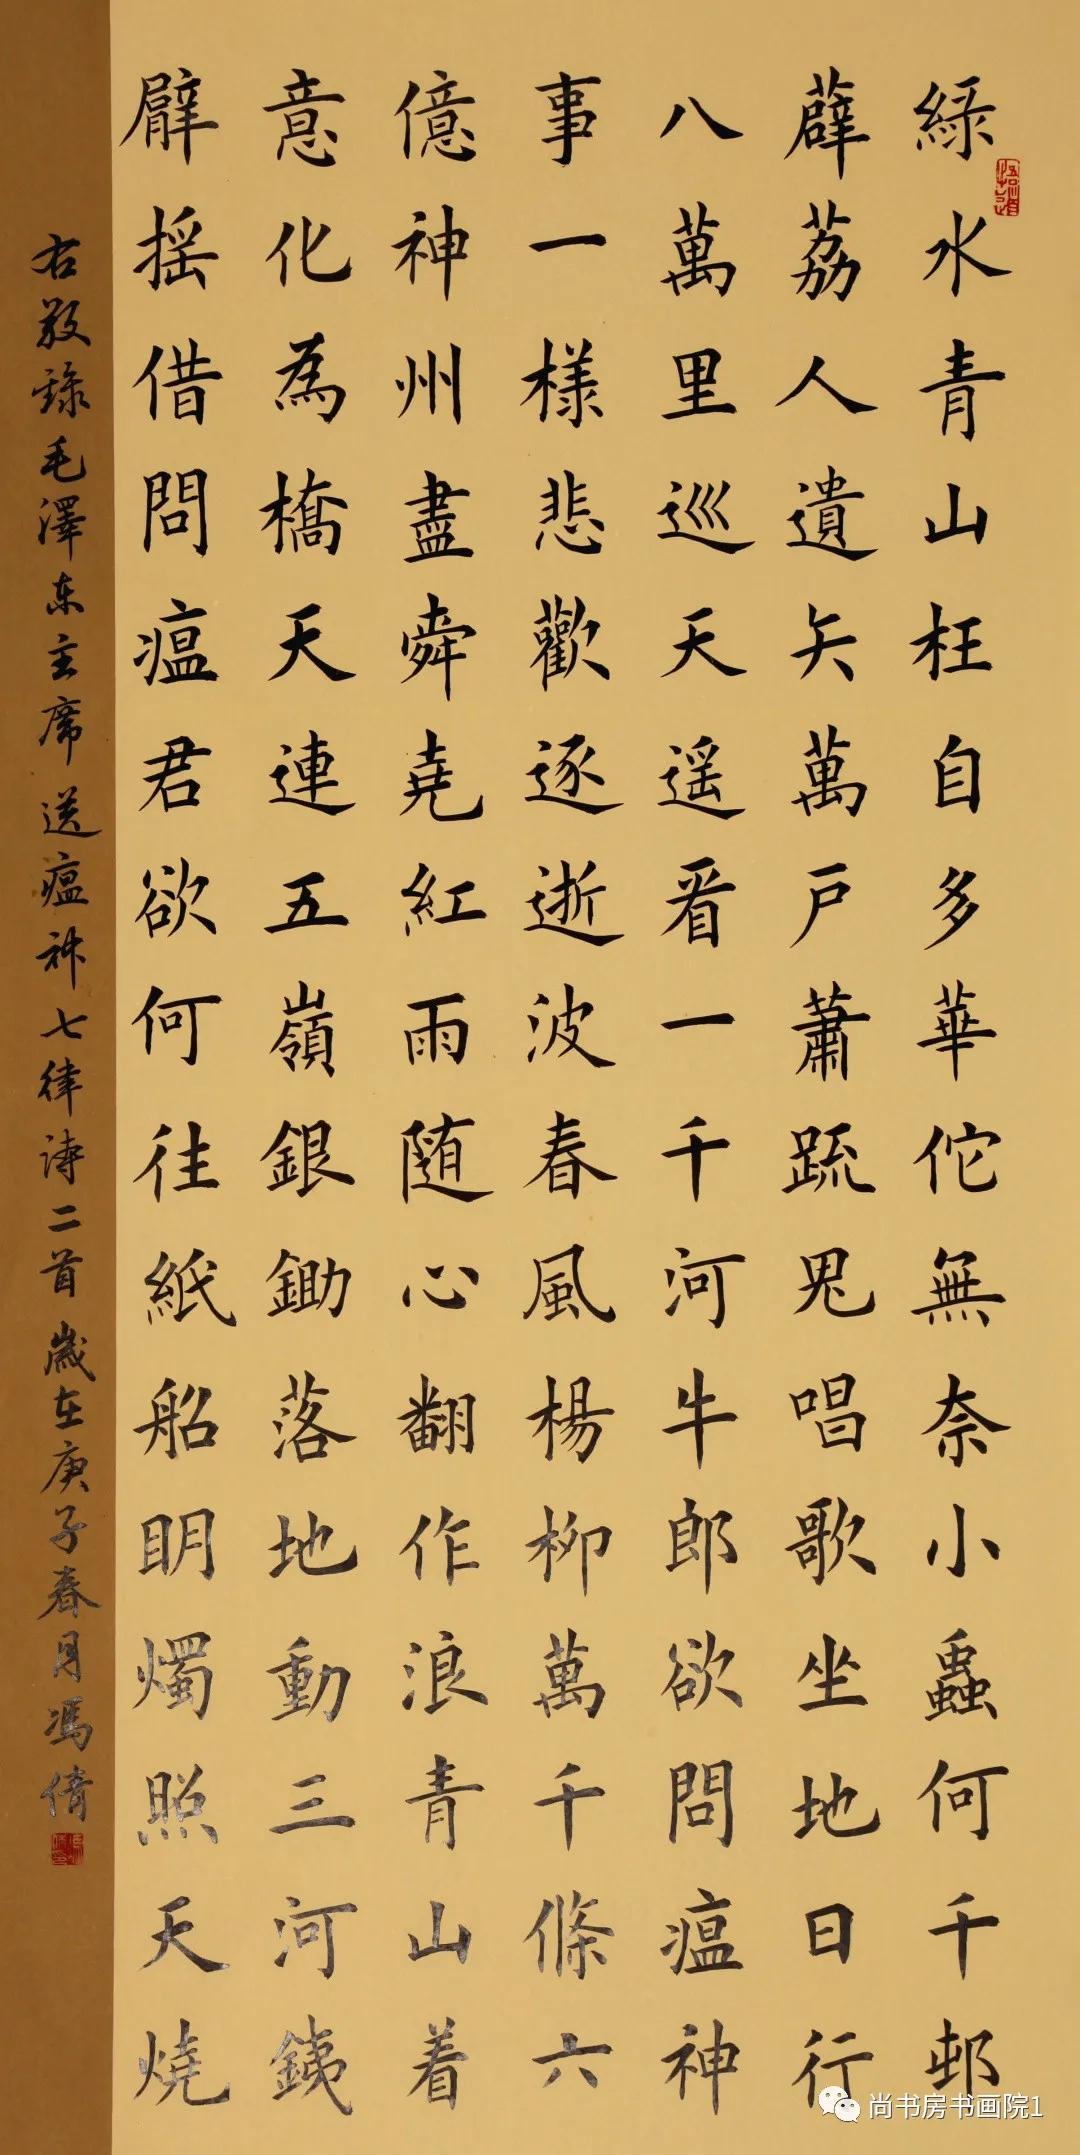 綠水青山枉自多華佗無奈小蟲何千邨
薜荔人遺矢萬户蕭疏鬼唱歌坐地日行
八萬里巡天遥看一千河牛郎欲問瘟神
事一樣悲歡逐逝波春風楊柳萬千條六
億神州盡舜堯紅雨随心翻作浪青山着
意化為橋天連五嶺銀鋤落地動三河鐵
臂摇借問瘟君欲何往紙船明燭照天燒
右敬録毛澤东主席送瘟神七律诗二首歲在庚子春月馮倩
尚书房书画院1